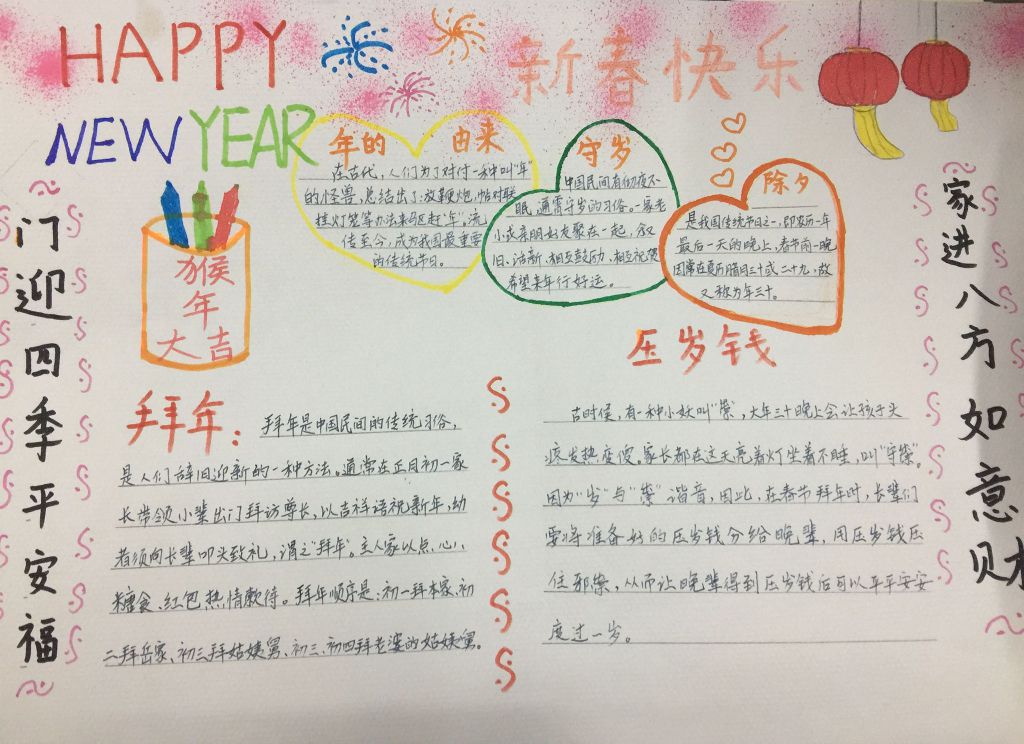 HAPPY
新春快乐
NEW YEAR
门迎四季平安福
家进八方如意财
猴
年
大吉
年的 由来
在古代,人们为了对付一种叫"年"
的怪兽,总结出了放鞭炮,帖对联
挂灯笼等办法来驱赶"年"。流
传至今,成为我国最重要
的传统节日。
守岁
中国民间有彻夜不
眠,通宵守岁的习俗。一家老
小或亲朋好友聚在一起,叙
旧、话新、相互鼓励,相互祝愿
希望来年行好运。
除夕
是我国传统节日之一,即农历一年
最后一天的晚上,春节前一晚
因常在夏历腊月三十或二十九,故
又称为年三十。
拜年:
拜年是中国民间的传统习俗,
是人们辞旧迎新的一种方法。通常在正月初一家
长带领小辈出门拜访尊长,以吉祥语祝新年,幼
者须向长辈叩头致礼,谓之"拜年"。主人家以点心、
糖食、红包热情款待。拜年顺序是:初一拜本家、初
二拜岳家、初三拜姑姨舅、初三、初四拜老婆的姑姨舅。
压岁钱
古时候,有一种小妖叫"祟",大年三十晚上会让孩子头
疼发热变傻。家长都在这天亮着灯坐着不睡,叫"守祟"。
因为"岁"与"祟"谐音,因此,在春节拜年时,长辈们
要将准备好的压岁钱分给晚辈,用压岁钱压
住邪祟,从而让晚辈得到压岁钱后可以平平安安
度过一岁。